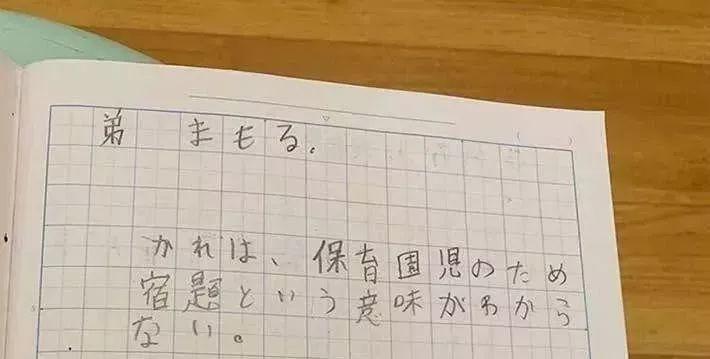 弟 まもる.
かれは、保育園児のため
宿題という意味がわから
ない。